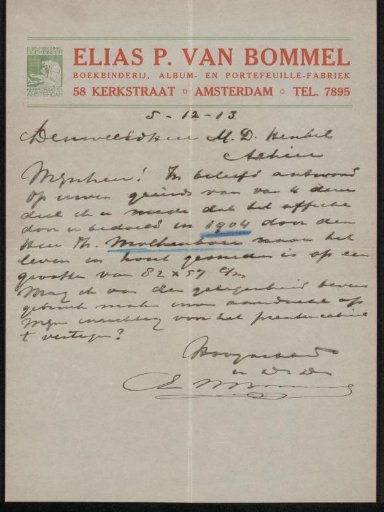 ELIAS P. VAN BOMMEL
BOEKBINDERIJ, ALBUM- EN PORTEFEUILLE-FABRIEK
58 KERKSTRAAT AMSTERDAM TEL. 7895
5-12-13
M. D. Henkel
Alhier
Mijnheer! In beleefd antwoord
op uwen van de deze
deel ik u mede dat het affiche
door u bedoeld in 1904 door den
Heer Th. Molkenboer naar het
leven in hout gesneden is op een
grootte van 82 x 57 c/m
Mag ik van de gelegenheid
gebruik maken uwe aandacht op
mijn inrichting voor het
te vestigen?
Hoogachtend